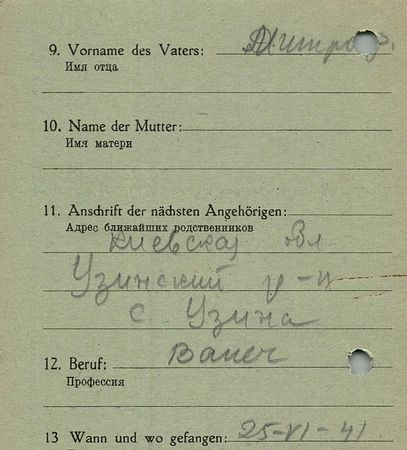 9. Vorname des Vaters: Митроф.
Имя отца
10. Name der Mutter:
Имя матери
11. Anschrift der nächsten Angehörigen:
Адрес ближайших родственников
Киевская обл
Узинский р-н
с. Узина
12. Beruf:
Профессия
13 Wann und wo gefangen: 25-VI-41.